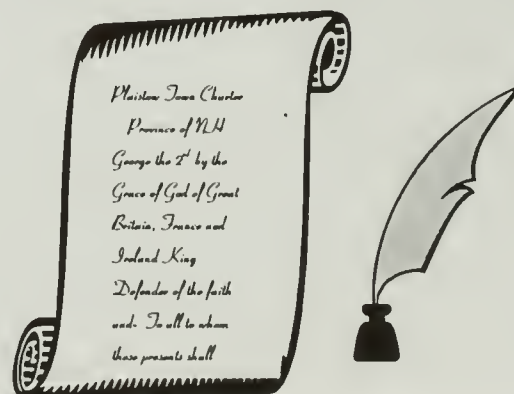 Plaistow Town Charter
Province of N.H
George the 2d by the
Grace of God of Great
Britain, France and
Ireland King
Defender of the faith
and- To all to whom
these presents shall